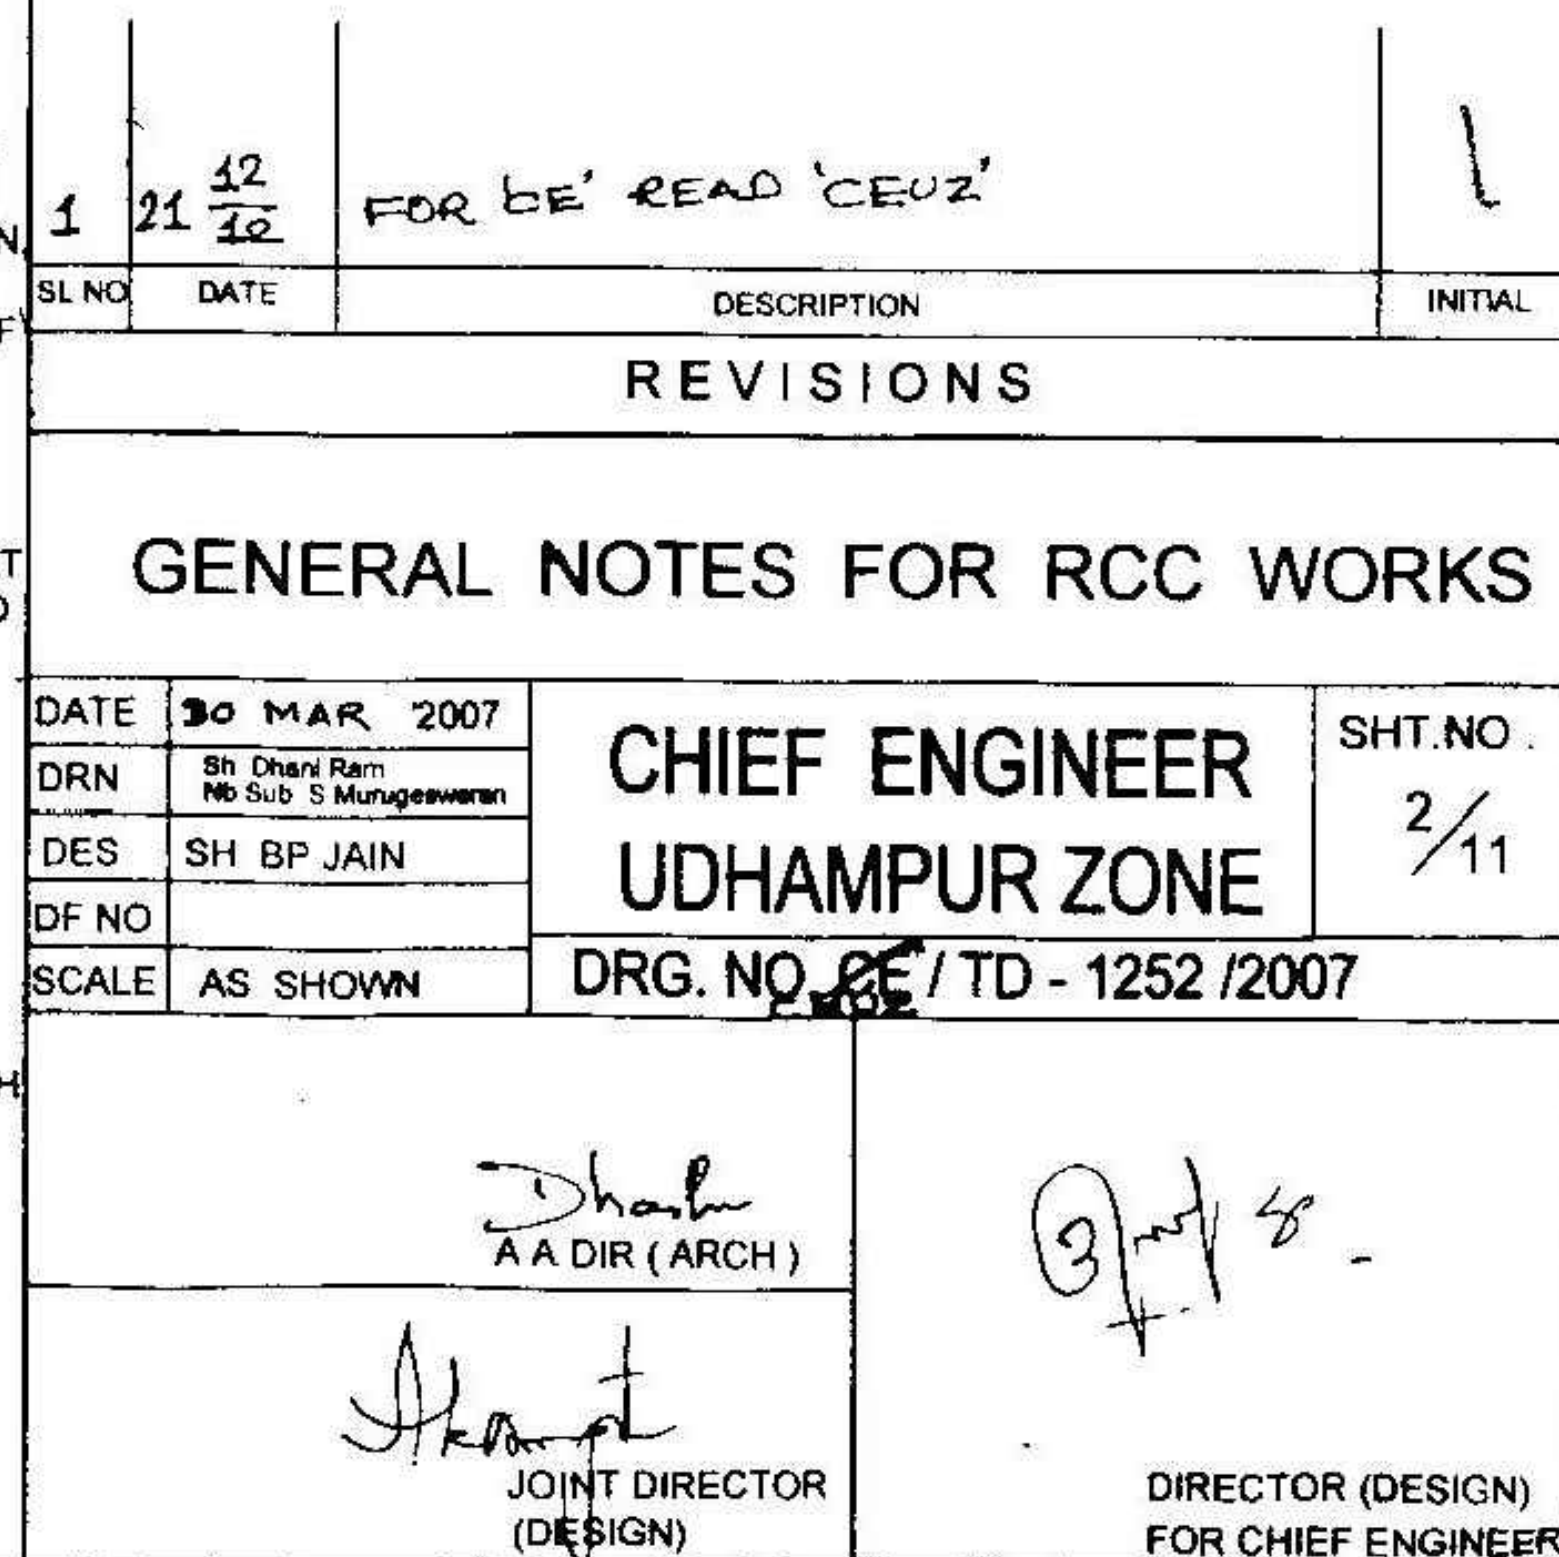 1 21 12/10 FOR 'CE' READ 'CEUZ'
SL NO DATE DESCRIPTION INITIAL
REVISIONS
GENERAL NOTES FOR RCC WORKS
DATE 30 MAR 2007
DRN Sh Dhani Ram
Nb Sub S Murugeswaran
DES SH BP JAIN
DF NO
SCALE AS SHOWN
CHIEF ENGINEER
UDHAMPUR ZONE
SHT.NO.
2/11
DRG. NO. CE / TD - 1252 /2007
CEUZ
A A DIR ( ARCH )
JOINT DIRECTOR
(DESIGN)
DIRECTOR (DESIGN)
FOR CHIEF ENGINEER